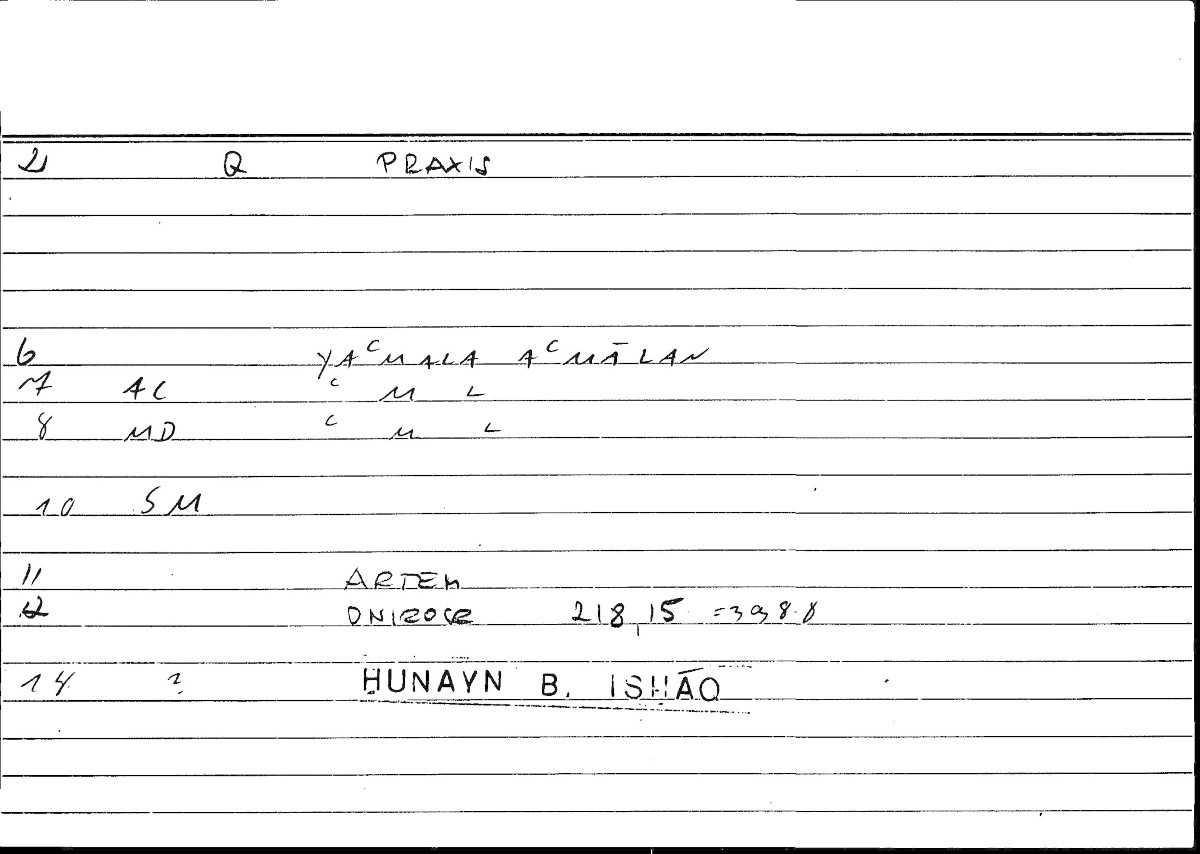 2 Q PRAXIS
6 YAᶜMALA AᶜMĀLAN
7 AC ᶜ M L
8 MD ᶜ M L
10 SM
11 ARTEM
12 ONIROCR 218,15 =398.8
14 ? ḤUNAYN B. ISḤĀQ